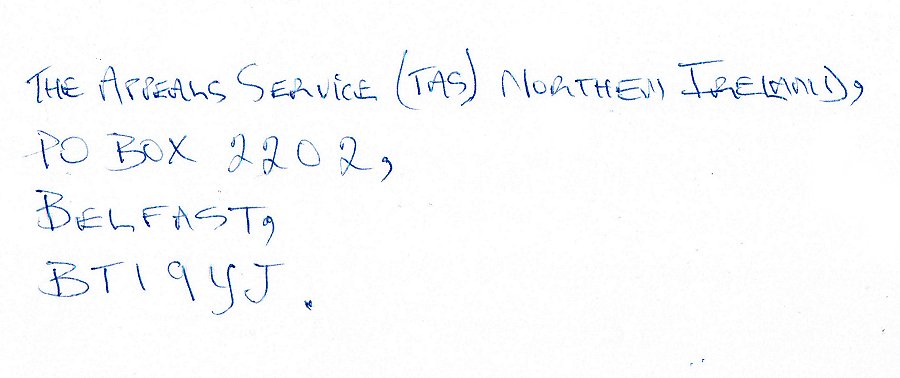 THE APPEALS SERVICE (TAS) NORTHERN IRELAND,
PO BOX 2202,
BELFAST,
BT1 9YJ.